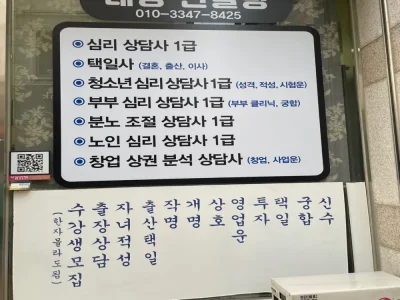 010-3347-8425
심리 상담사 1급
택일사 (결혼, 출산, 이사)
청소년 심리 상담사 1급 (성격, 적성, 시험운)
부부 심리 상담사 1급 (부부 클리닉, 궁합)
분노 조절 상담사 1급
노인 심리 상담사 1급
창업 상권 분석 상담사 (창업, 사업운)
신수
궁합
택일
투자
영업운
상호
개명
작명
출산택일
자녀적성
출장상담
수강생모집
(한자몰라도됨)